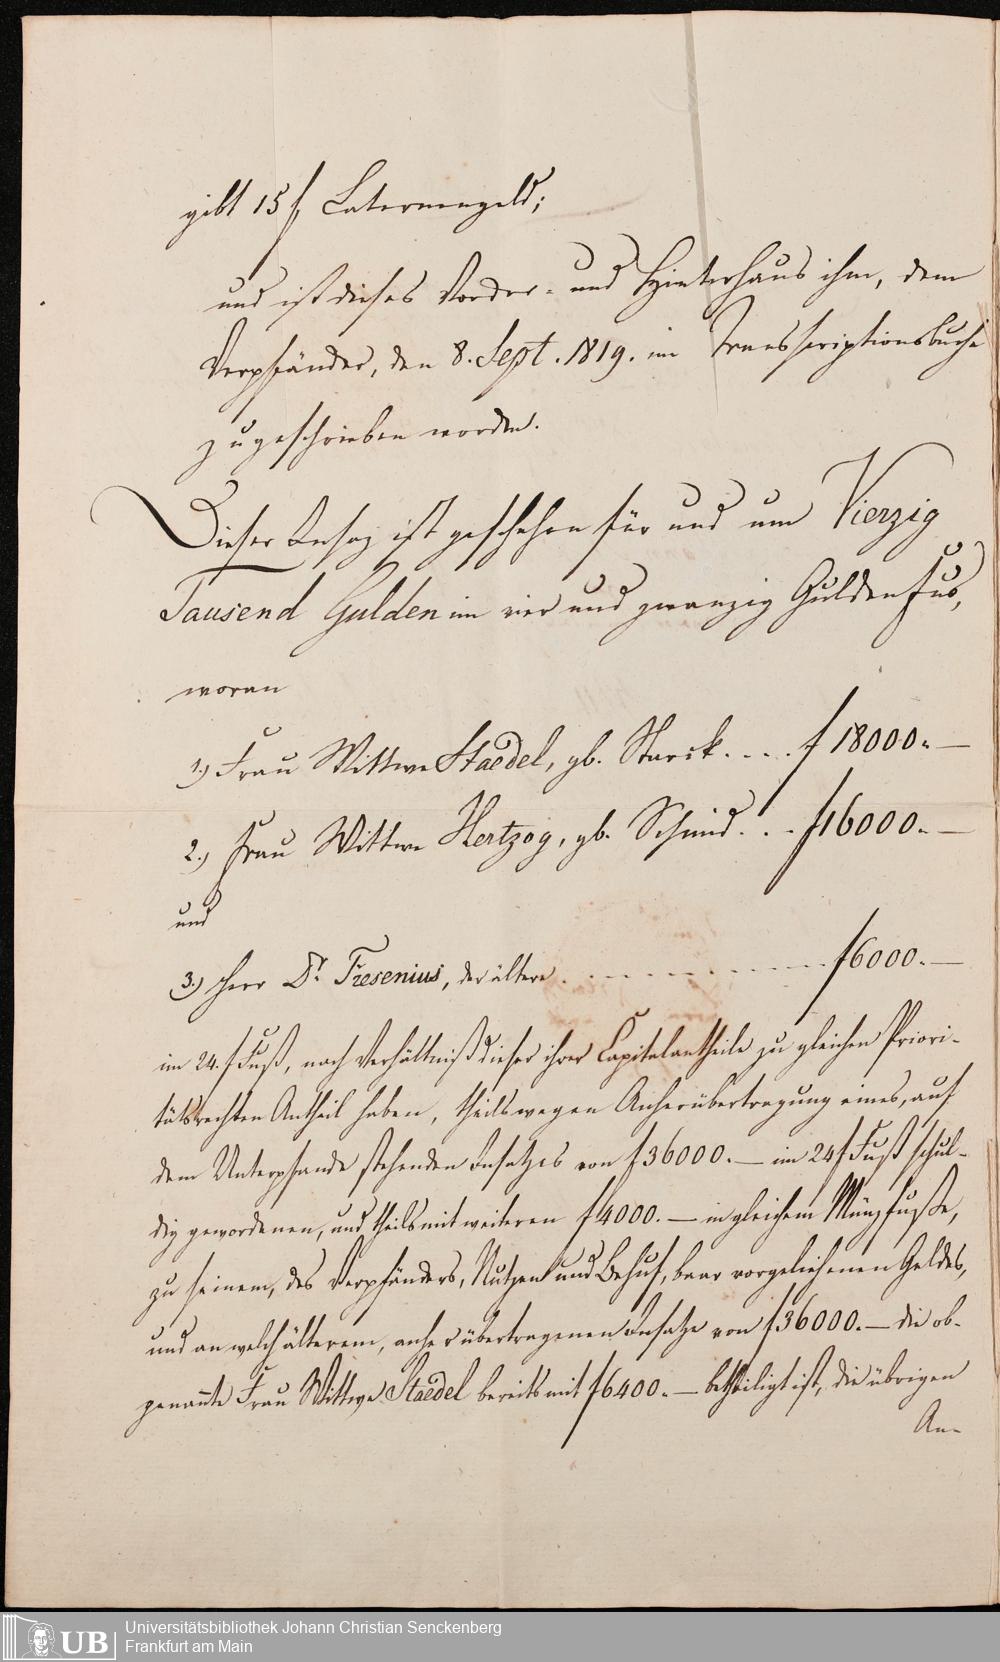 gibt 15 f Laternengeld;
und ist dieses Vorder- und Hinterhaus ihm, dem
Verpfänder, den 8. Sept. 1819. im Transscriptionsbuche
zugeschrieben worden.
Dieser Insaz ist geschehen für und um Vierzig
Tausend Gulden im vier und zwanzig Guldenfus,
woran
1.) Frau Wittwe Staedel, gb. Starck . . . . f 18000.—
2.) Frau Wittwe Hertzog, gb. Schmid . . . f 16000.—
und
3.) Herr Dr. Fresenius, der ältere . . . . . . . . . . f 6000.—
im 24. f Fuß, nach Verhältniß dieser ihrer Capitalantheile zu gleichen Priori-
tätsrechten Antheil haben, theils wegen Anherübertragung eines, auf
dem Unterpfande stehenden Insatzes von f 36000.— im 24 f Fuß schul-
dig gewordenen, und theils mit weiteren f 4000.— in gleichem Münzfuße,
zu seinem, des Verpfänders, Nutzen und Behuf, baar vorgeliehenen Geldes,
und an welch älterem, anher übertragenen Insatze von f 36000.— die ob-
genannte Frau Wittwe Staedel bereits mit f 6400.— betheiligt ist, die übrigen
An-
UB
Universitätsbibliothek Johann Christian Senckenberg
Frankfurt am Main